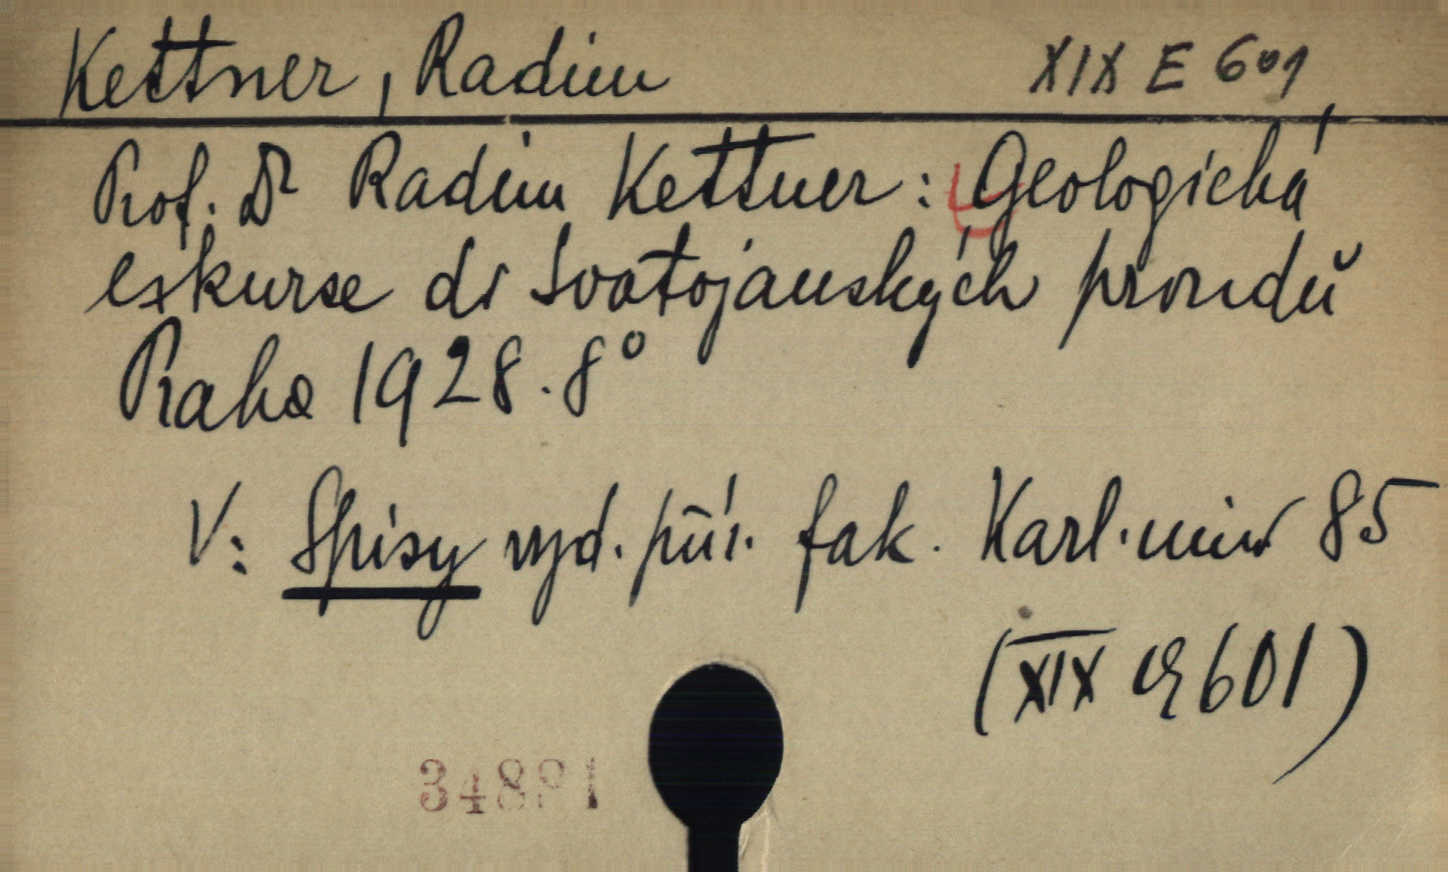 Kettner, Radim XIX E 601
Prof. Dr Radim Kettner: Geologická
exkurse do Svatojanských proudů
Praha 1928. 8°
V: Spisy vyd. přír. fak. Karl. univ 85
(XIX E 601)
34881